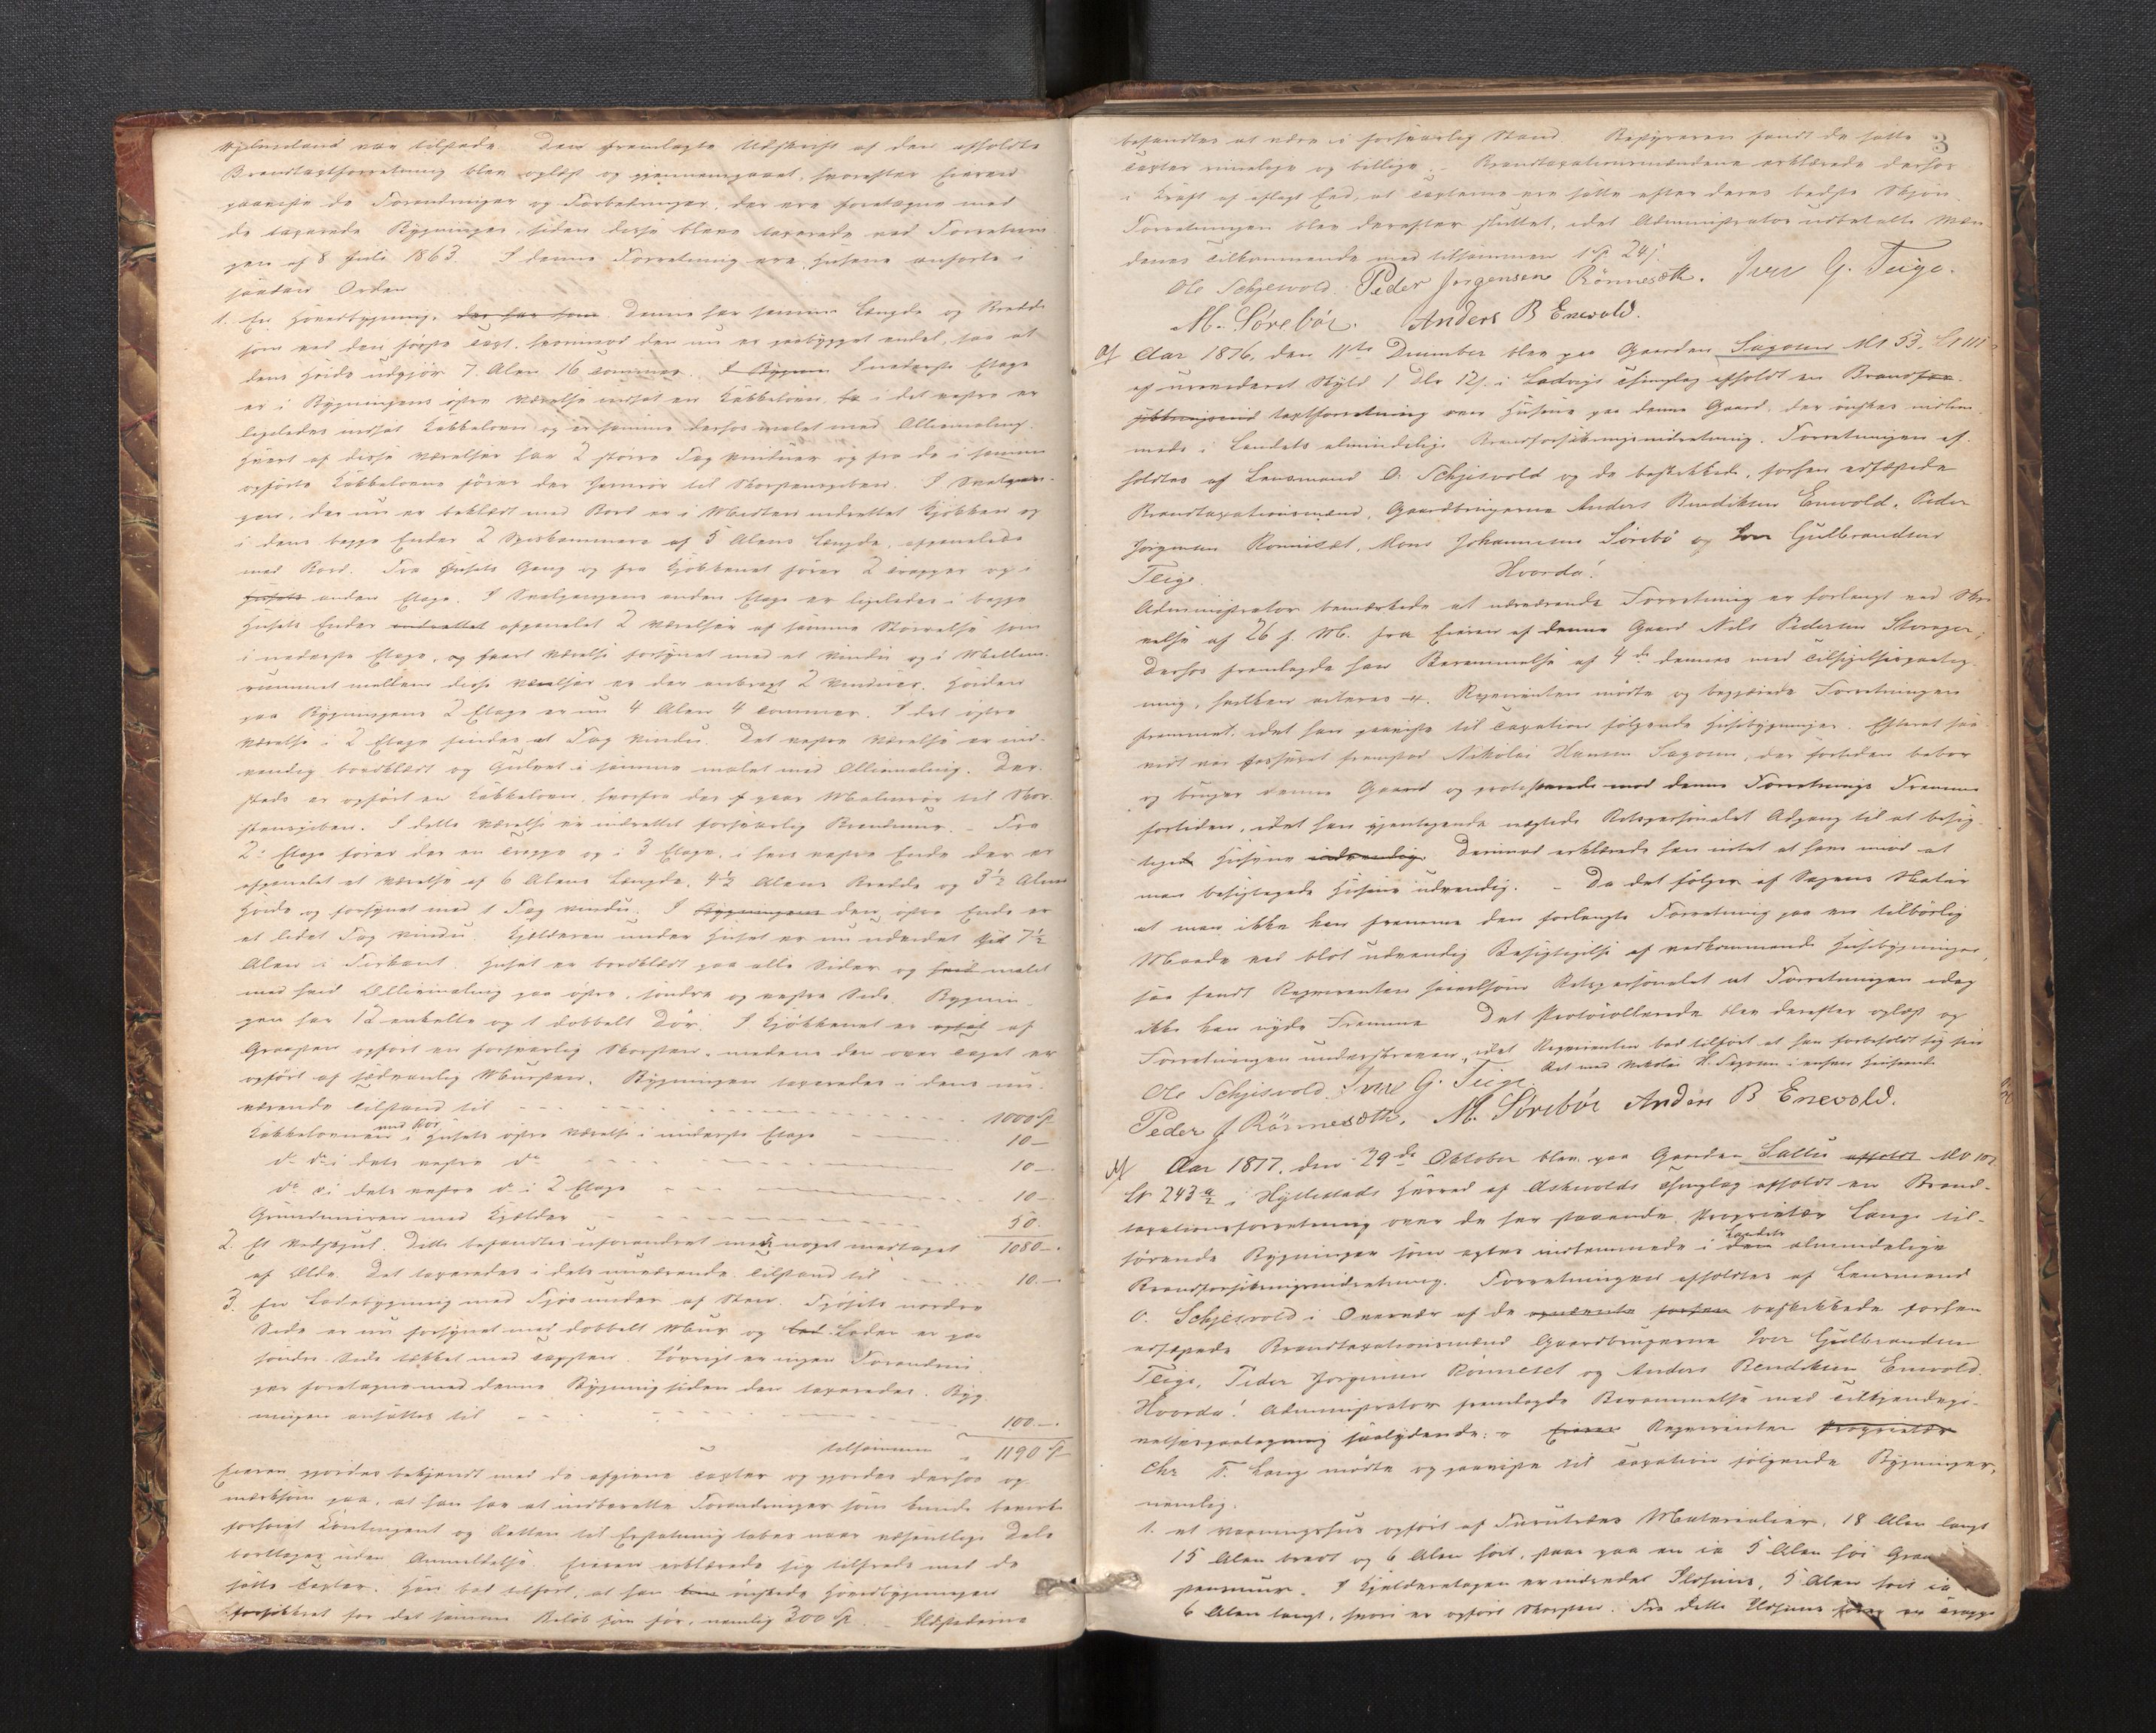 var tilstede. Den fremlagte Udskrift af den afholdte
Brandtaxtforretning blev oplæst og gjennemgaaet, hvorefter Eieren
paaviste de Forandringer og Forbedringer, der ere foretagne med
de taxerede Bygninger, siden disse bleve taxerede ved Forretnin-
gen af 8 Juli 1863. I denne Forretning ere Husene anførte i
saadan Orden
1. En Hovedbygning, der har som Denne har samme Længde og Bredde
som ved den første Taxt, hvorimod den nu er paabygget endel, saa at
dens Høide udgjør 7 Alen 16 Tommer. I Bygnin I nederste Etage
er i Bygningens østre Værelse indsat en Kakkelovn, i det vestre er
ligeledes indsat Kakkelovn og er samme derhos malet med Olliemaling.
Hvert af disse Værelser har 2 større Fag Vinduer og fra de i samme
opførte Kakkelovne fører der Jernrør til Skorstenspiben. I Svalgan-
gen, der nu er beklædt med Bord er i Midten indrettet Kjøkken og
i dens begge Ender 2 Spiskammere af 5 Alens Længde, afpanelede
med Bord. Fra Husets Gang og fra Kjøkkenet fører 2 Trapper op i
Husets anden Etage. I Svalgangens anden Etage er ligeledes i begge
Husets Ender indrettet afpanelet 2 Værelser af samme Størrelse som
i nederste Etage, og hvert Værelse forsynet med et Vindu og i Mellem-
rummet mellem disse Værelser er der anbragt 2 Vinduer. Høiden
paa Bygningens 2 Etage er nu 4 Alen 4 Tommer. I det østre
Værelse i 2 Etage findes et Fag Vindu. Det vestre Værelse er ind-
vendig bordklædt og Gulvet i samme malet med Olliemaling. Der-
steds er opført en Kakkelovn, hvorfra der gaar Malmrør til Skor-
stenspiben. I dette Værelse er indrettet forsvarlig Brandmur. – Fra
2 Etage fører der en Trappe op i 3 Etage, i hvis vestre Ende der er
afpanelet et Værelse af 6 Alens Længde, 4½ Alens Bredde og 3½ Alens
Høide og forsynet med 1 Fag Vindu. I Bygningens den østre Ende er
et lidet Fag Vindu. Kjælderen under Huset er nu udvidet til 7½
Alen i Firkant. Huset er bordklædt paa alle Sider og hvid malet
med hvid Olliemaling paa østre, søndre og vestre Side. Bygnin-
gen har 12 enkelte og 1 dobbelt Dør. I Kjøkkenet er opført af
Graasten opført en forsvarlig Skorsten, medens den over Taget er
opført af sædvanlig Mursten. Bygningen taxeredes i dens nu-
værende Tilstand til 1000 Sp
Kakkelovnen med Rør i Husets østre Værelse i nederste Etage 10 –
do do i dets vestre do 10 –
do do i dets vestre do i 2 Etage 10 –
Grundmuren med Kjælder 50.
2. Et Vedskjul. Dette befandtes uforandret med noget medtaget 1080 –
af Ælde. Det taxeredes i dets nuværende Tilstand til 10. –
3. En Ladebygning med Fjøs under af Sten. Fjøsets nordre
Side er nu forsynet med dobbelt Mur og Laden er paa
søndre Side tækket med Tagsten. Forøvrigt er ingen Forandrin-
ger foretagne med denne Bygning siden den taxeredes. Byg-
ningen ansattes til 100 –
tilsammen 1190 Sp
Eieren gjordes bekjendt med de afgivne Taxter og gjordes derhos op-
mærksom paa, at han har at indberette Forandringer som kunde bevirke
forhøiet Contingent og Retten til Erstatning tabes naar væsentlige Dele
borttages uden Anmeldelse. Eieren erklærede sig tilfreds med de
satte Taxter. Han bad tilført, at han ønskede Hovedbygningen
forsikkret for det samme Beløb som før, nemlig 300 Sp. – Ildstederne
3
befandtes at være i forsvarlig Stand. Bestyreren fandt de satte
Taxter rimelige og billige. – Brandtaxationsmændene erklærede derhos
i Kraft af aflagt Eed, at Taxterne ere satte efter deres bedste Skjøn.
Forretningen blev derefter sluttet, idet Administrator udbetalte Mæn-
denes Tilkommende med tilsammen 1 Sp 24 s.
Ole Schjesvold. Peder Jørgensen Rönnesæth. Iver G. Teige.
M. Sørebør. Anders B Enevold.
Aar 1876, den 11te December blev paa Gaarden Sagosen M No 53. L No 111
af urevideret Skyld 1 Dlr 12 s. i Ladvigs Thinglag afholdt en Brandfor-
sikkringsind taxtforretning over Husene paa denne Gaard, der ønskes indlem-
mede i Landets almindelige Brandforsikringsindretning. Forretningen af-
holdtes af Lensmand O. Schjesvold og de beskikkede, forhen edfæstede
Brandtaxationsmænd, Gaardbrugerne Anders Bendiksen Enevold, Peder
Jørgensen Rønneset, Mons Johannesen Sørebø og Iver Gulbrandsen
Teige. Hvorda!
Administrator bemærkede at nærværende Forretning er forlangt ved Skri-
velse af 26 f. M. fra Eieren af denne Gaard Nils Pedersen Storøger;
derhos fremlagde han Berammelse af 4de dennes med Tilsigelsespaateg-
ning, hvilken acteres. Reqvirenten mødte og begjærede Forretningen
fremmet, idet han paaviste til Taxation følgende Husebygninger. Efterat saa-
vidt var passeret fremstod Nikolai Hansen Sagosen, der fortiden bebor
og bruger denne Gaard og protesterede mod denne Forretnings Fremme
fortiden, idet han gjentagende nægtede Retspersonalet Adgang til at besig-
tigede Husene indvendig. Derimod erklærede han intet at have imod at
man besigtigede Husene udvendig. – Da det følger af Sagens Natur
at man ikke kan fremme den forlangte Forretning paa en tilbørlig
Maade ved blot udvendig Besigtigelse af vedkommende Husebygninger,
saa fandt Reqvirenten saavelsom Retspersonalet at Forretningen idag
ikke kan nyde Fremme. Det Protocollerede blev derefter oplæst og
Forretningen underskreven, idet Reqvirenten bad tilført at han forbeholdt sig sin
Ret mod Nikolai H. Sagosen i enhver Henseende.
Ole Schjesvold. Iver G. Teige
Peder J Rönnesæth. M. Sørebör Anders B Enevold.
Aar 1877, den 29de Oktober blev paa Gaarden Salbu afholdt M No 102
L No 243 a i Hyllestads Herred af Askvolds Thinglag afholdt en Brand-
taxationsforretning over de her staaende, Proprietær Lange til-
hørende Bygninger som agtes indlemmede i den Landets almindelige
Brandforsikringsindretning. Forretningen afholdtes af Lensmand
O. Schjesvold i Overvær af de opnævnte forhen beskikkede forhen
edfæstede Brandtaxationsmænd Gaardbrugerne Iver Gulbrandsen
Teige, Peder Jørgensen Rönneset og Anders Bendiksen Enevold.
Hvorda! Administrator fremlagde Berammelse med Tilkjendegi-
velsespaategning saalydende: Eieren Reqvirenten Proprietær
Chr F. Lange mødte og paaviste til Taxation følgende Bygninger,
nemlig:
1. et Vaaningshus opført af Furutræes Materialier, 18 Alen langt
15 Alen bredt og 6 Alen høit, staar paa en ca 5 Alen høi Graa-
stensmur. I Kjelderetagen er indredet Ildhuus, 5 Alen høit ca
6 Alen langt, hvori er opført Skorsten. Fra dette Ildhuus fører en Trappe